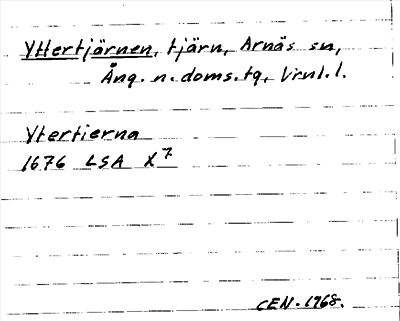 Yttertjärnen, tjärn, Arnäs sn,
Ång. n. doms. tg, Vrnl. l.
Ytertierna
1676 LSA X7
CEN. 1968.